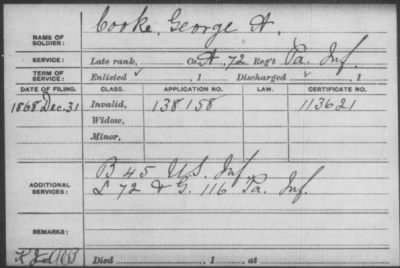 NAME OF SOLDIER: Cooke, George A.
SERVICE: Late rank, Co. A, 72 Reg't Pa. Inf.
TERM OF SERVICE: Enlisted , 1 Discharged , 1
DATE OF FILING. CLASS. APPLICATION NO. LAW. CERTIFICATE NO.
1868 Dec. 31 Invalid, 138158 113621
Widow,
Minor,
ADDITIONAL SERVICES: B 45 U.S. Inf.
L 72 & G. 116 Pa. Inf.
REMARKS:
Died , 1 , at